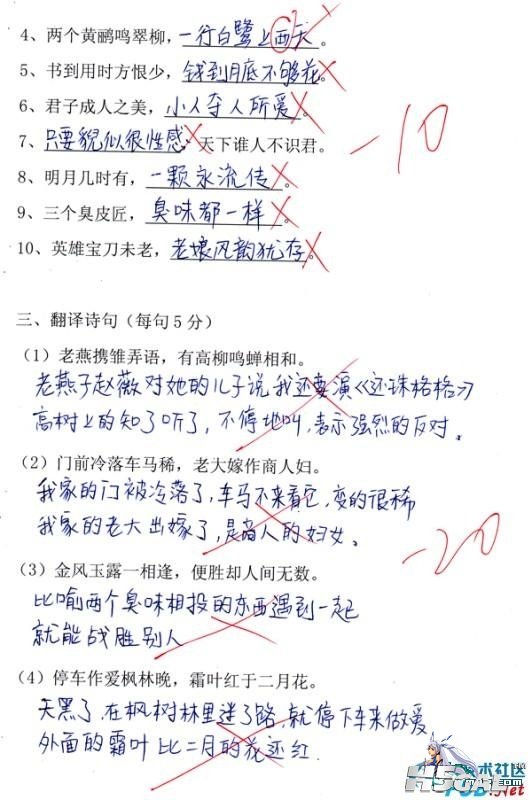 4、两个黄鹂鸣翠柳，一行白鹭上西天。
5、书到用时方恨少，钱到月底不够花。
6、君子成人之美，小人夺人所爱。
7、只要貌似很性感，天下谁人不识君。
8、明月几时有，一颗永流传。
9、三个臭皮匠，臭味都一样。
10、英雄宝刀未老，老娘风韵犹存。
-10
三、翻译诗句（每句5分）
（1）老燕携雏弄语，有高柳鸣蝉相和。
老燕子赵薇对她的儿子说我还要演《还珠格格》
高树上的知了听了，不停地叫，表示强烈的反对。
（2）门前冷落车马稀，老大嫁作商人妇。
我家的门被冷落了，车马不来看它，变的很稀
我家的老大出嫁了，是商人的妇女。
-20
（3）金风玉露一相逢，便胜却人间无数。
比喻两个臭味相投的东西遇到一起
就能战胜别人
（4）停车作爱枫林晚，霜叶红于二月花。
天黑了，在枫树林里迷了路，就停下车来做爱
外面的霜叶比二月的花还红
术社区
.Net